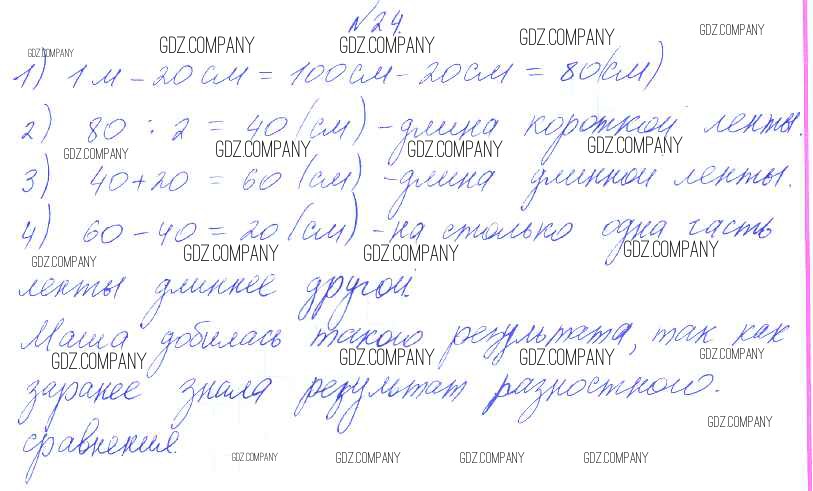 №24.
GDZ.COMPANY GDZ.COMPANY GDZ.COMPANY GDZ.COMPANY GDZ.COMPANY
1) 1 м - 20 см = 100см - 20см = 80(см)
2) 80 : 2 = 40 (см) - длина короткой ленты.
GDZ.COMPANY GDZ.COMPANY GDZ.COMPANY GDZ.COMPANY
3) 40+20 = 60 (см) - длина длинной ленты.
4) 60 - 40 = 20 (см) - на столько одна часть
GDZ.COMPANY GDZ.COMPANY GDZ.COMPANY GDZ.COMPANY
ленты длиннее другой.
Маша добилась такого результата, так как
GDZ.COMPANY GDZ.COMPANY GDZ.COMPANY GDZ.COMPANY
заранее знала результат разностного.
GDZ.COMPANY
сравнения.
GDZ.COMPANY GDZ.COMPANY GDZ.COMPANY GDZ.COMPANY